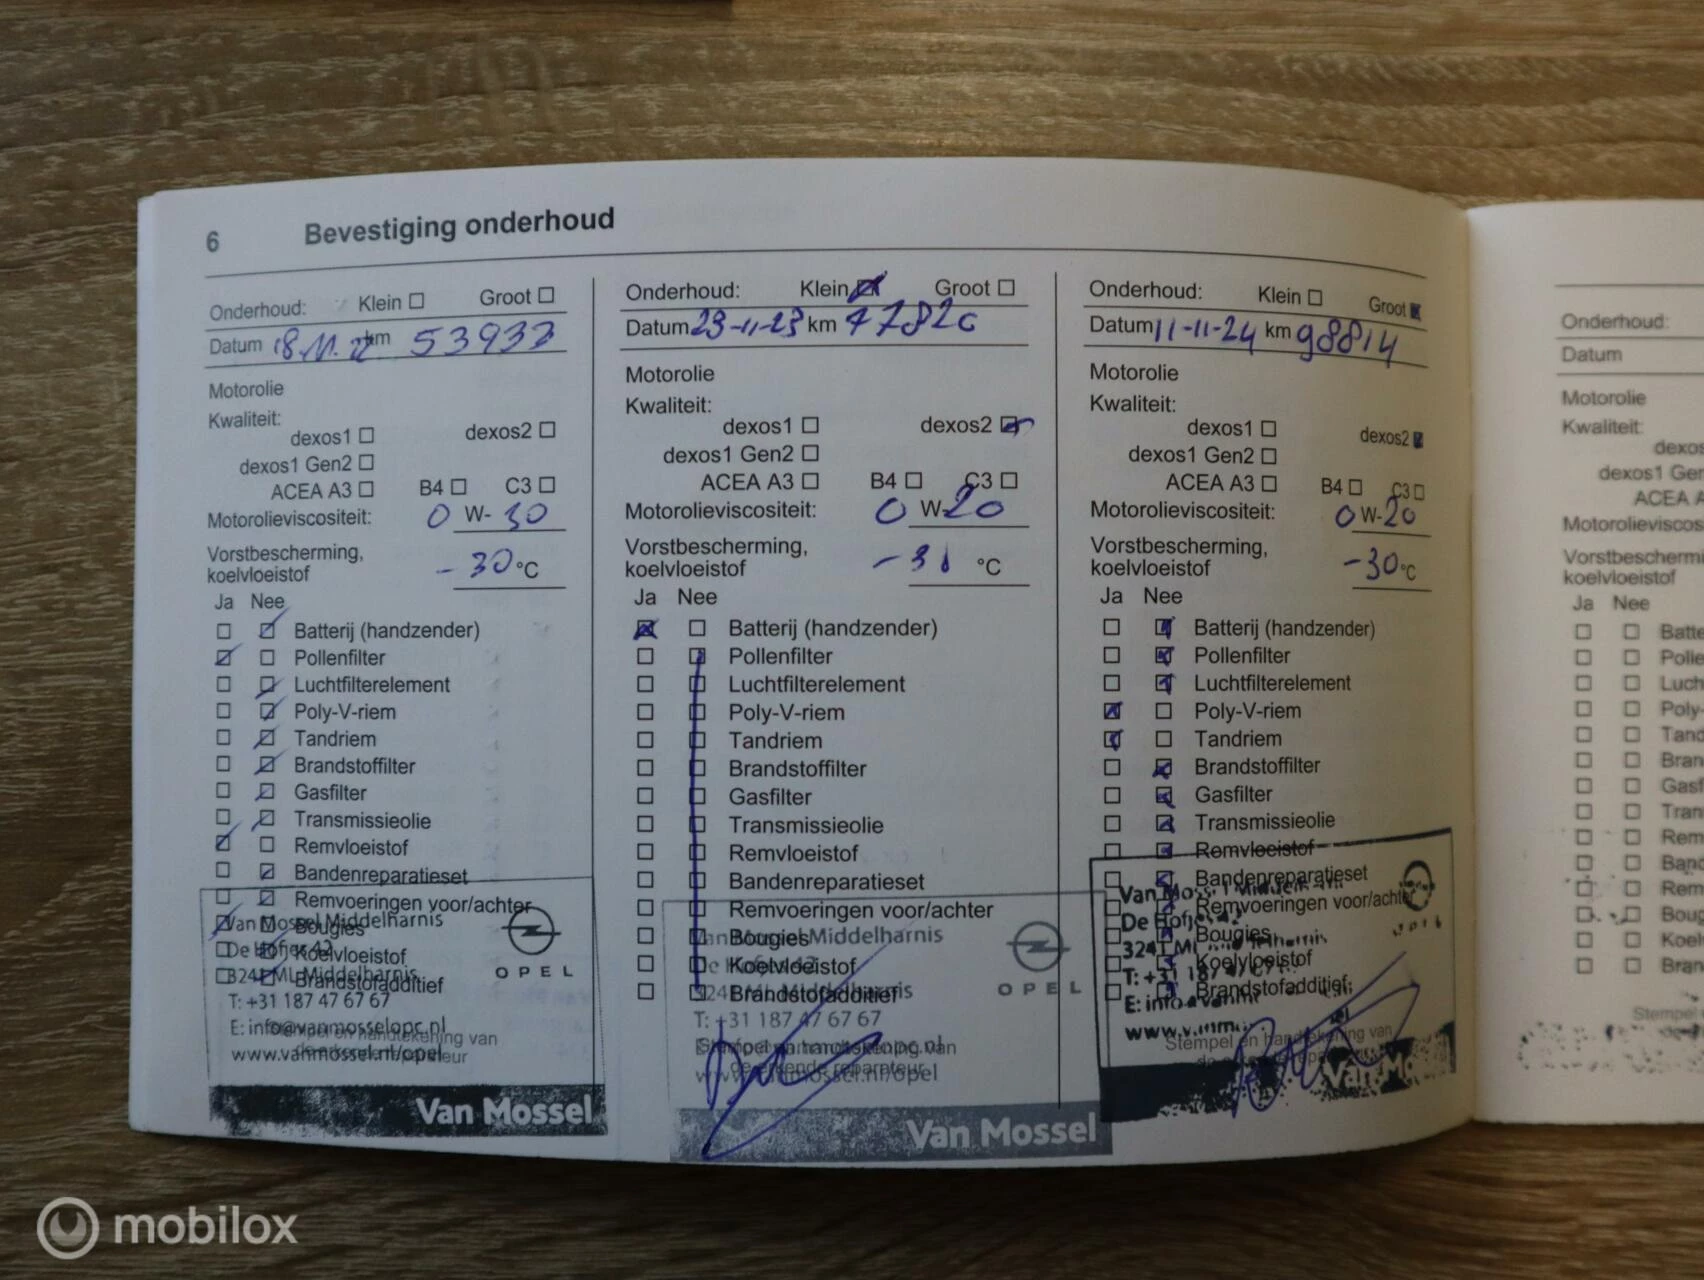 6 Bevestiging onderhoud
Onderhoud: Klein Groot
Datum 18.11.22 km 53933
Motorolie
Kwaliteit:
dexos1 dexos2
dexos1 Gen2
ACEA A3 B4 C3
Motorolieviscositeit: 0 W- 30
Vorstbescherming,
koelvloeistof -30 °C
Ja Nee
Batterij (handzender)
Pollenfilter
Luchtfilterelement
Poly-V-riem
Tandriem
Brandstoffilter
Gasfilter
Transmissieolie
Remvloeistof
Bandenreparatieset
Remvoeringen voor/achter
Bougies
Koelvloeistof
Brandstofadditief
Van Mossel Middelharnis
De Hofjes 42
3241 ML Middelharnis
T: +31 187 47 67 67
E: info@vanmosselopc.nl
www.vanmossel.nl/opel
Stempel en handtekening van
OPEL
Van Mossel
Onderhoud: Klein Groot
Datum 23-11-23 km 77820
Motorolie
Kwaliteit:
dexos1 dexos2
dexos1 Gen2
ACEA A3 B4 C3
Motorolieviscositeit: 0 W-20
Vorstbescherming,
koelvloeistof -31 °C
Ja Nee
Batterij (handzender)
Pollenfilter
Luchtfilterelement
Poly-V-riem
Tandriem
Brandstoffilter
Gasfilter
Transmissieolie
Remvloeistof
Bandenreparatieset
Remvoeringen voor/achter
Bougies
Koelvloeistof
Brandstofadditief
Van Mossel Middelharnis
T: +31 187 47 67 67
Stempel en handtekening van
de erkende reparateur
www.vanmossel.nl/opel
OPEL
Van Mossel
Onderhoud: Klein Groot
Datum 11-11-24 km 98814
Motorolie
Kwaliteit:
dexos1 dexos2
dexos1 Gen2
ACEA A3 B4 C3
Motorolieviscositeit: 0 W-20
Vorstbescherming,
koelvloeistof -30 °C
Ja Nee
Batterij (handzender)
Pollenfilter
Luchtfilterelement
Poly-V-riem
Tandriem
Brandstoffilter
Gasfilter
Transmissieolie
Remvloeistof
Bandenreparatieset
Remvoeringen voor/achter
Bougies
Koelvloeistof
Brandstofadditief
Van Mossel Middelharnis
De Hofjes 42
Stempel en handtekening van
Van Mo
Onderhoud:
Datum
Motorolie
Kwaliteit:
dexos
dexos1 Gen
ACEA A
Motorolieviscos
Vorstbeschermin
koelvloeistof
Ja Nee
Batte
Polle
Luch
Poly-
Tand
Bran
Gasf
Tran
Rem
Band
Rem
Boug
Koel
Bran
Stempel
mobilox